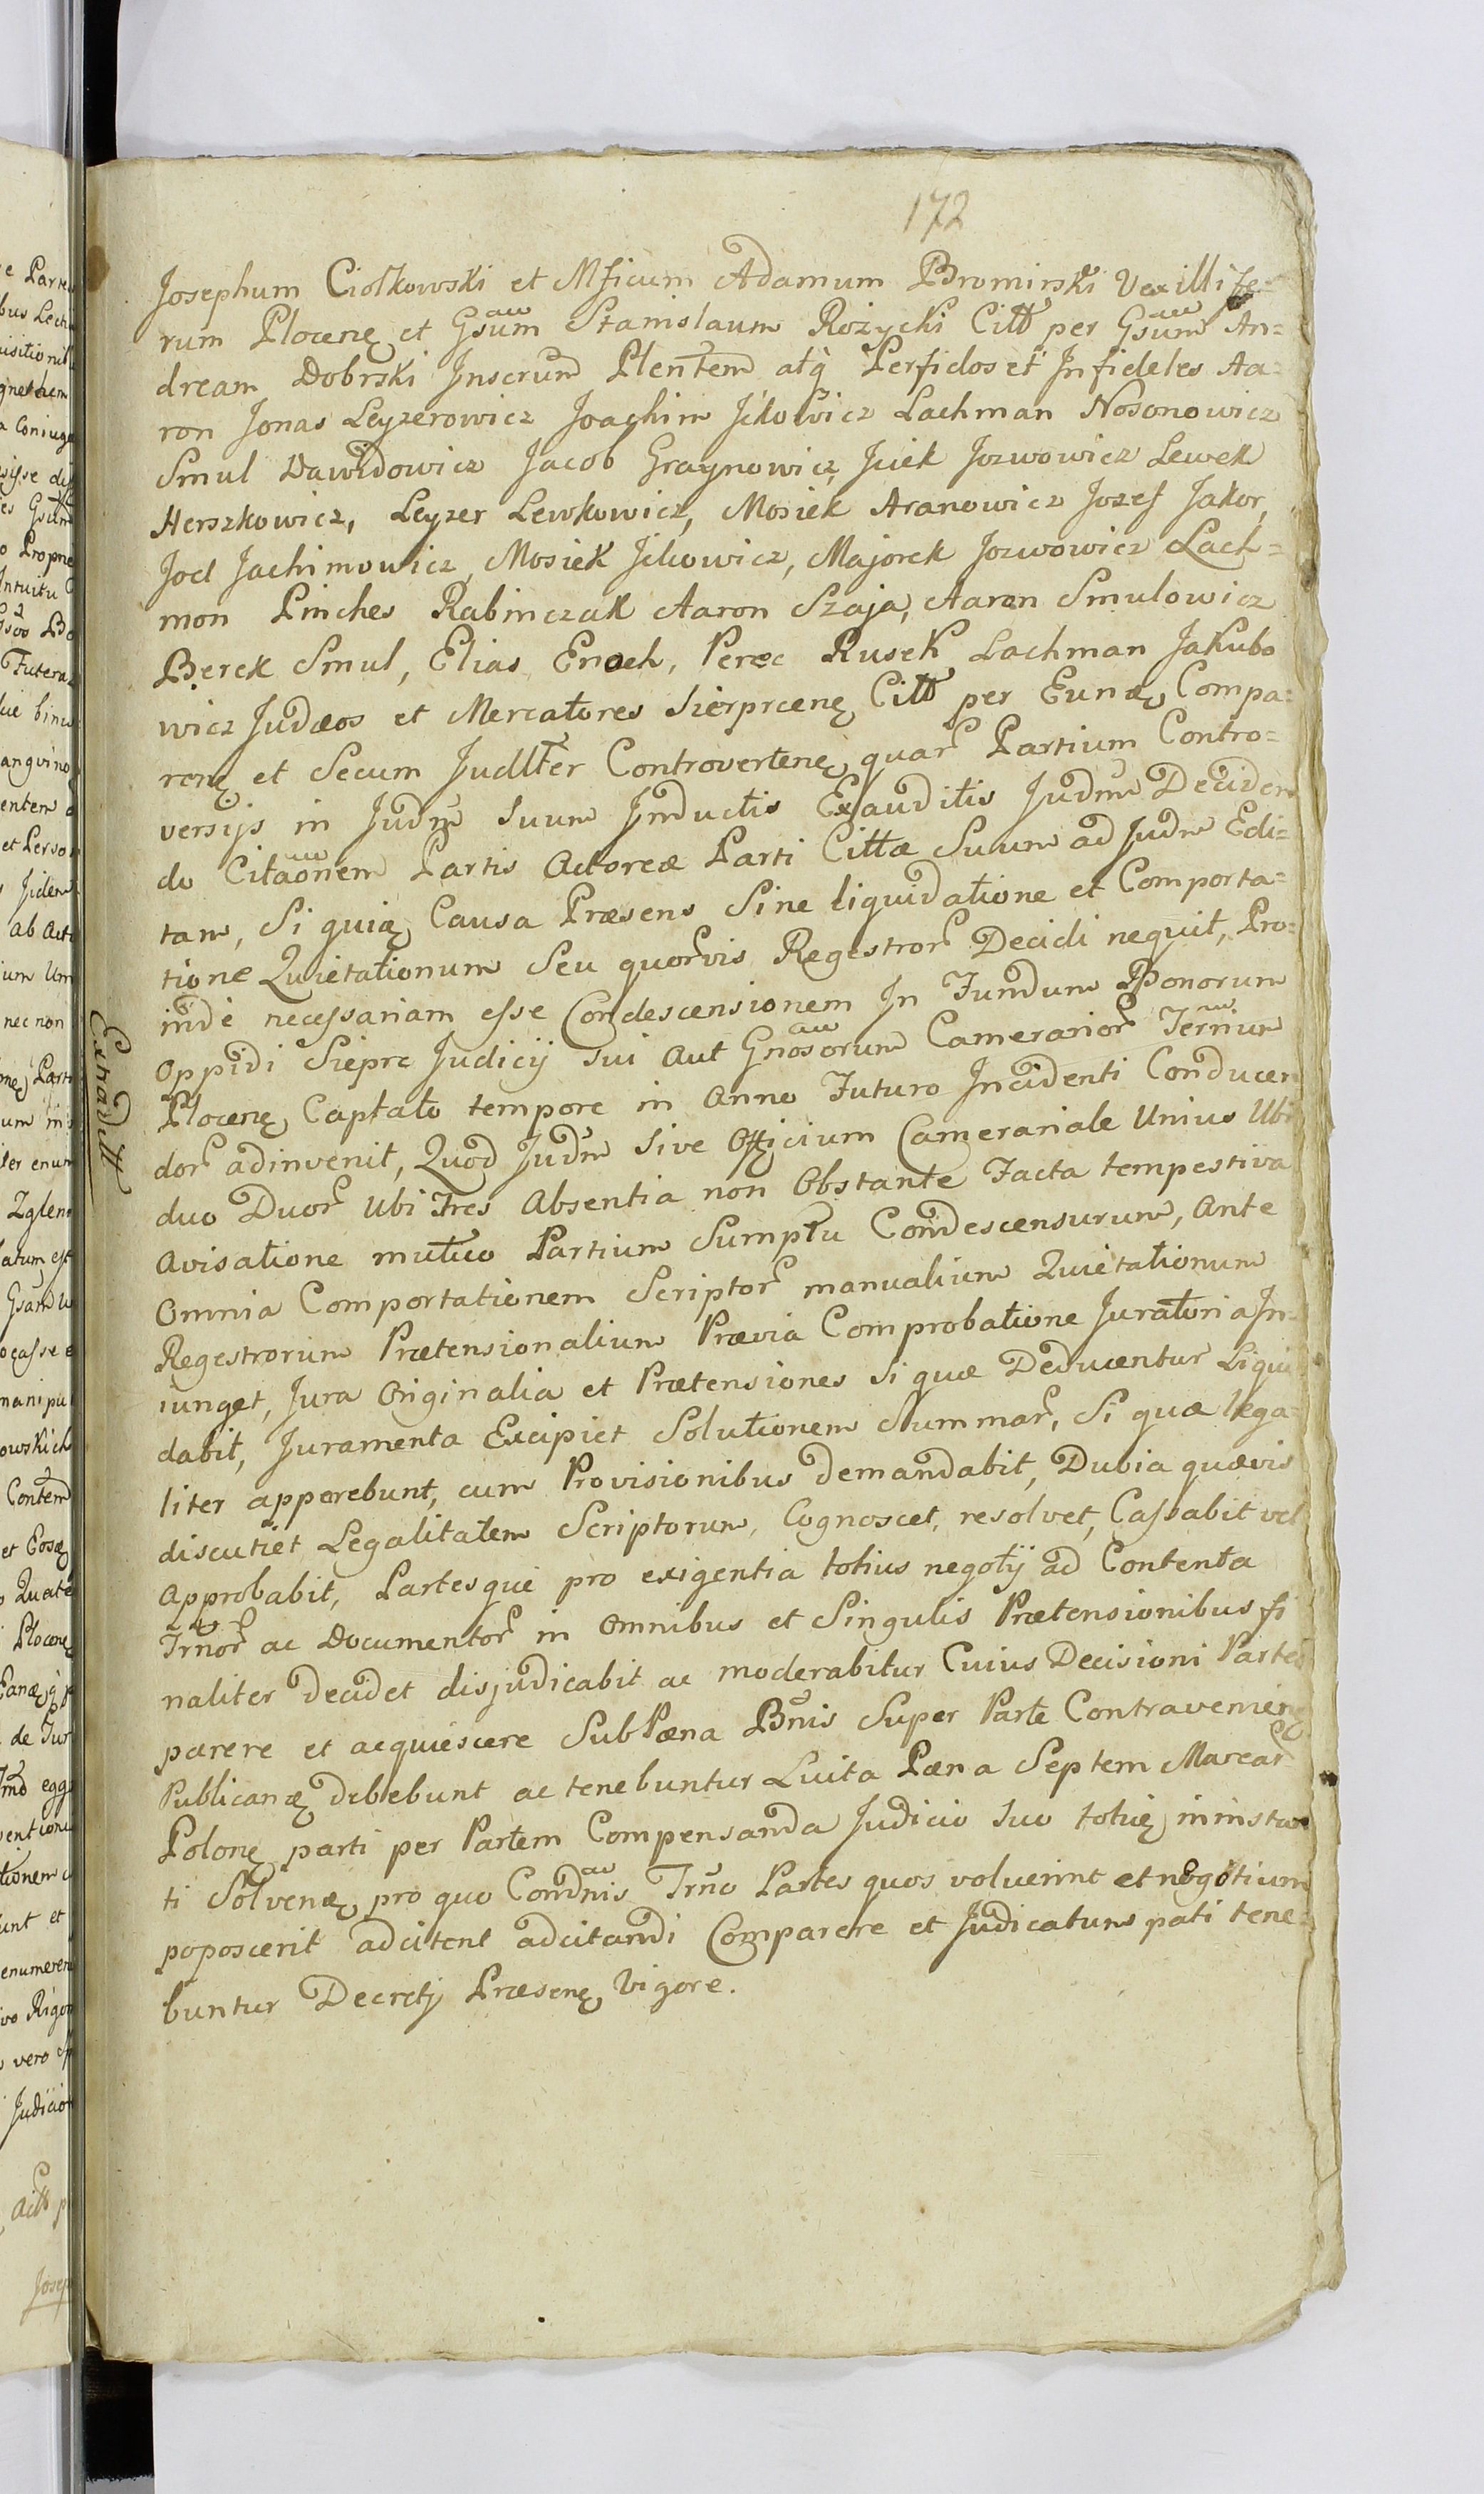 172
Josephum Ciołkowski et Mficum Adamum Bromirski Vexillife=
rum Plocenȩ et Gsum Stanislaum Rożycki Citt per Gsum An=
dream Dobrski Inscrum Plentem atq̀ Perfidos et Infideles Aa=
ron Jonas Leyzerowicz Joachim Jckowicz Lachman Nosonowicz
Smul Dawidowicz Jacob Graynowicz Jciek Jozwowicz Lewek
Herszkowicz, Leyzer Lewkowicz, Mosiek Aranowicz Jozef Jakor,
Joel Jachimowicz, Mosiek Jckowicz, Majorek Jozwowicz Lach=
mon Pinches Rabinczak Aaron Szaja, Aaron Smulowicz
Berek Smul, Elias Enoch, Perec Rusek Lachman Jakubo
wicz Judæos et Mercatores Sierprcenȩ Citt per Eunđ Compa=
renȩ et Secum Judlłter Controvertenȩ quar Partium Contro=
versijs in Judm̃ Suum Inductis Exauditis Judm̃ Deciden
do Citaonem Partis Actoreæ Parti Cittæ Suum ad Judm̃ Edi=
tam, Si quiȩ Causa Præsens Sine liquidatione et Comporta=
tione Quietationum Seu quorvis Regestror Decidi nequit, Pro=
indè necessariam esse Condescensionem In Fundum Bonorum
Oppidi Sieprc Judicij sui aut Gnosorum Camerarior Ternium
Plocenȩ Captato tempore in Anno Futuro Incidenti Conducen
dor adinvenit, Quod Judm̃ sive Officium Camerariale Unius Ubi
duo Duor Ubi Tres Absentia non Obstante Facta tempestiva
Avisatione mutuo Partium Sumptu Condescensurum, Ante
Omnia Comportationem Scriptor manualium Quietationum
Regestrorum Prætensionalium Prævia Comprobatione Juratoria In=
iunget, Jura Originalia et Prætensiones si quæ Deducentur Liqui
dabit, Juramenta Excipiet Solutionem Summar, Si quæ lega=
liter apparebunt, cum Provisionibus demandabit, Dubia quævis
discutiet Legalitatem Scriptorum, Cognoscet, resolvet, Cassabit vel
Approbabit, Partesque pro exigentia totius negotij ad Contenta
Trnor ac Documentor in Omnibus et Singulis Prætensionibus fi
naliter decidet disjudicabit ac moderabitur Cuius Decisioni Partes
parere et acquiescere Sub Pæna Bnis Super Parte Contravenienȩ
Publicanđ debebunt ac tenebuntur Luita Pæna Septem Marcar
Polonȩ parti per Partem Compensanda Judicio suo totiȩ in instan
ti Solvenđ pro quo Condnis Trno Partes quos voluerint et negotium
poposcerit adcitent adcitandi Comparere et Judicatum pati tene=
buntur Decreti Præsenȩ Vigore.
Extraditt